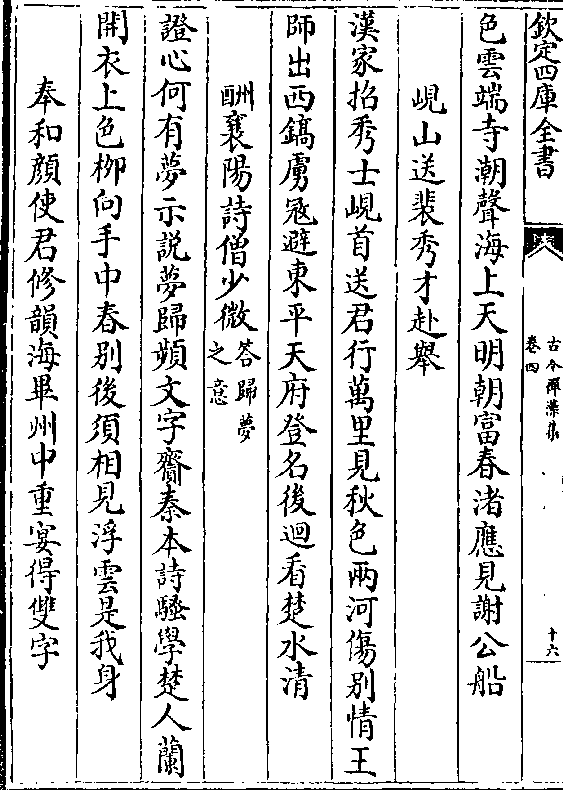 欽定四庫全書
古今禪藻集
卷四
十六
色雲端寺潮聲海上天明朝富春渚應見謝公船
峴山送裴秀才赴舉
漢家招秀士峴首送君行萬里見秋色兩河傷别情王
師出西鎬虜寇避東平天府登名後迴看楚水清
酬襄陽詩僧少微答歸夢之意
證心何有夢示説夢歸頻文字齎秦本詩騷學楚人蘭
開衣上色栁向手中春别後須相見浮雲是我身
奉和顔使君修韻海畢州中重宴得雙字